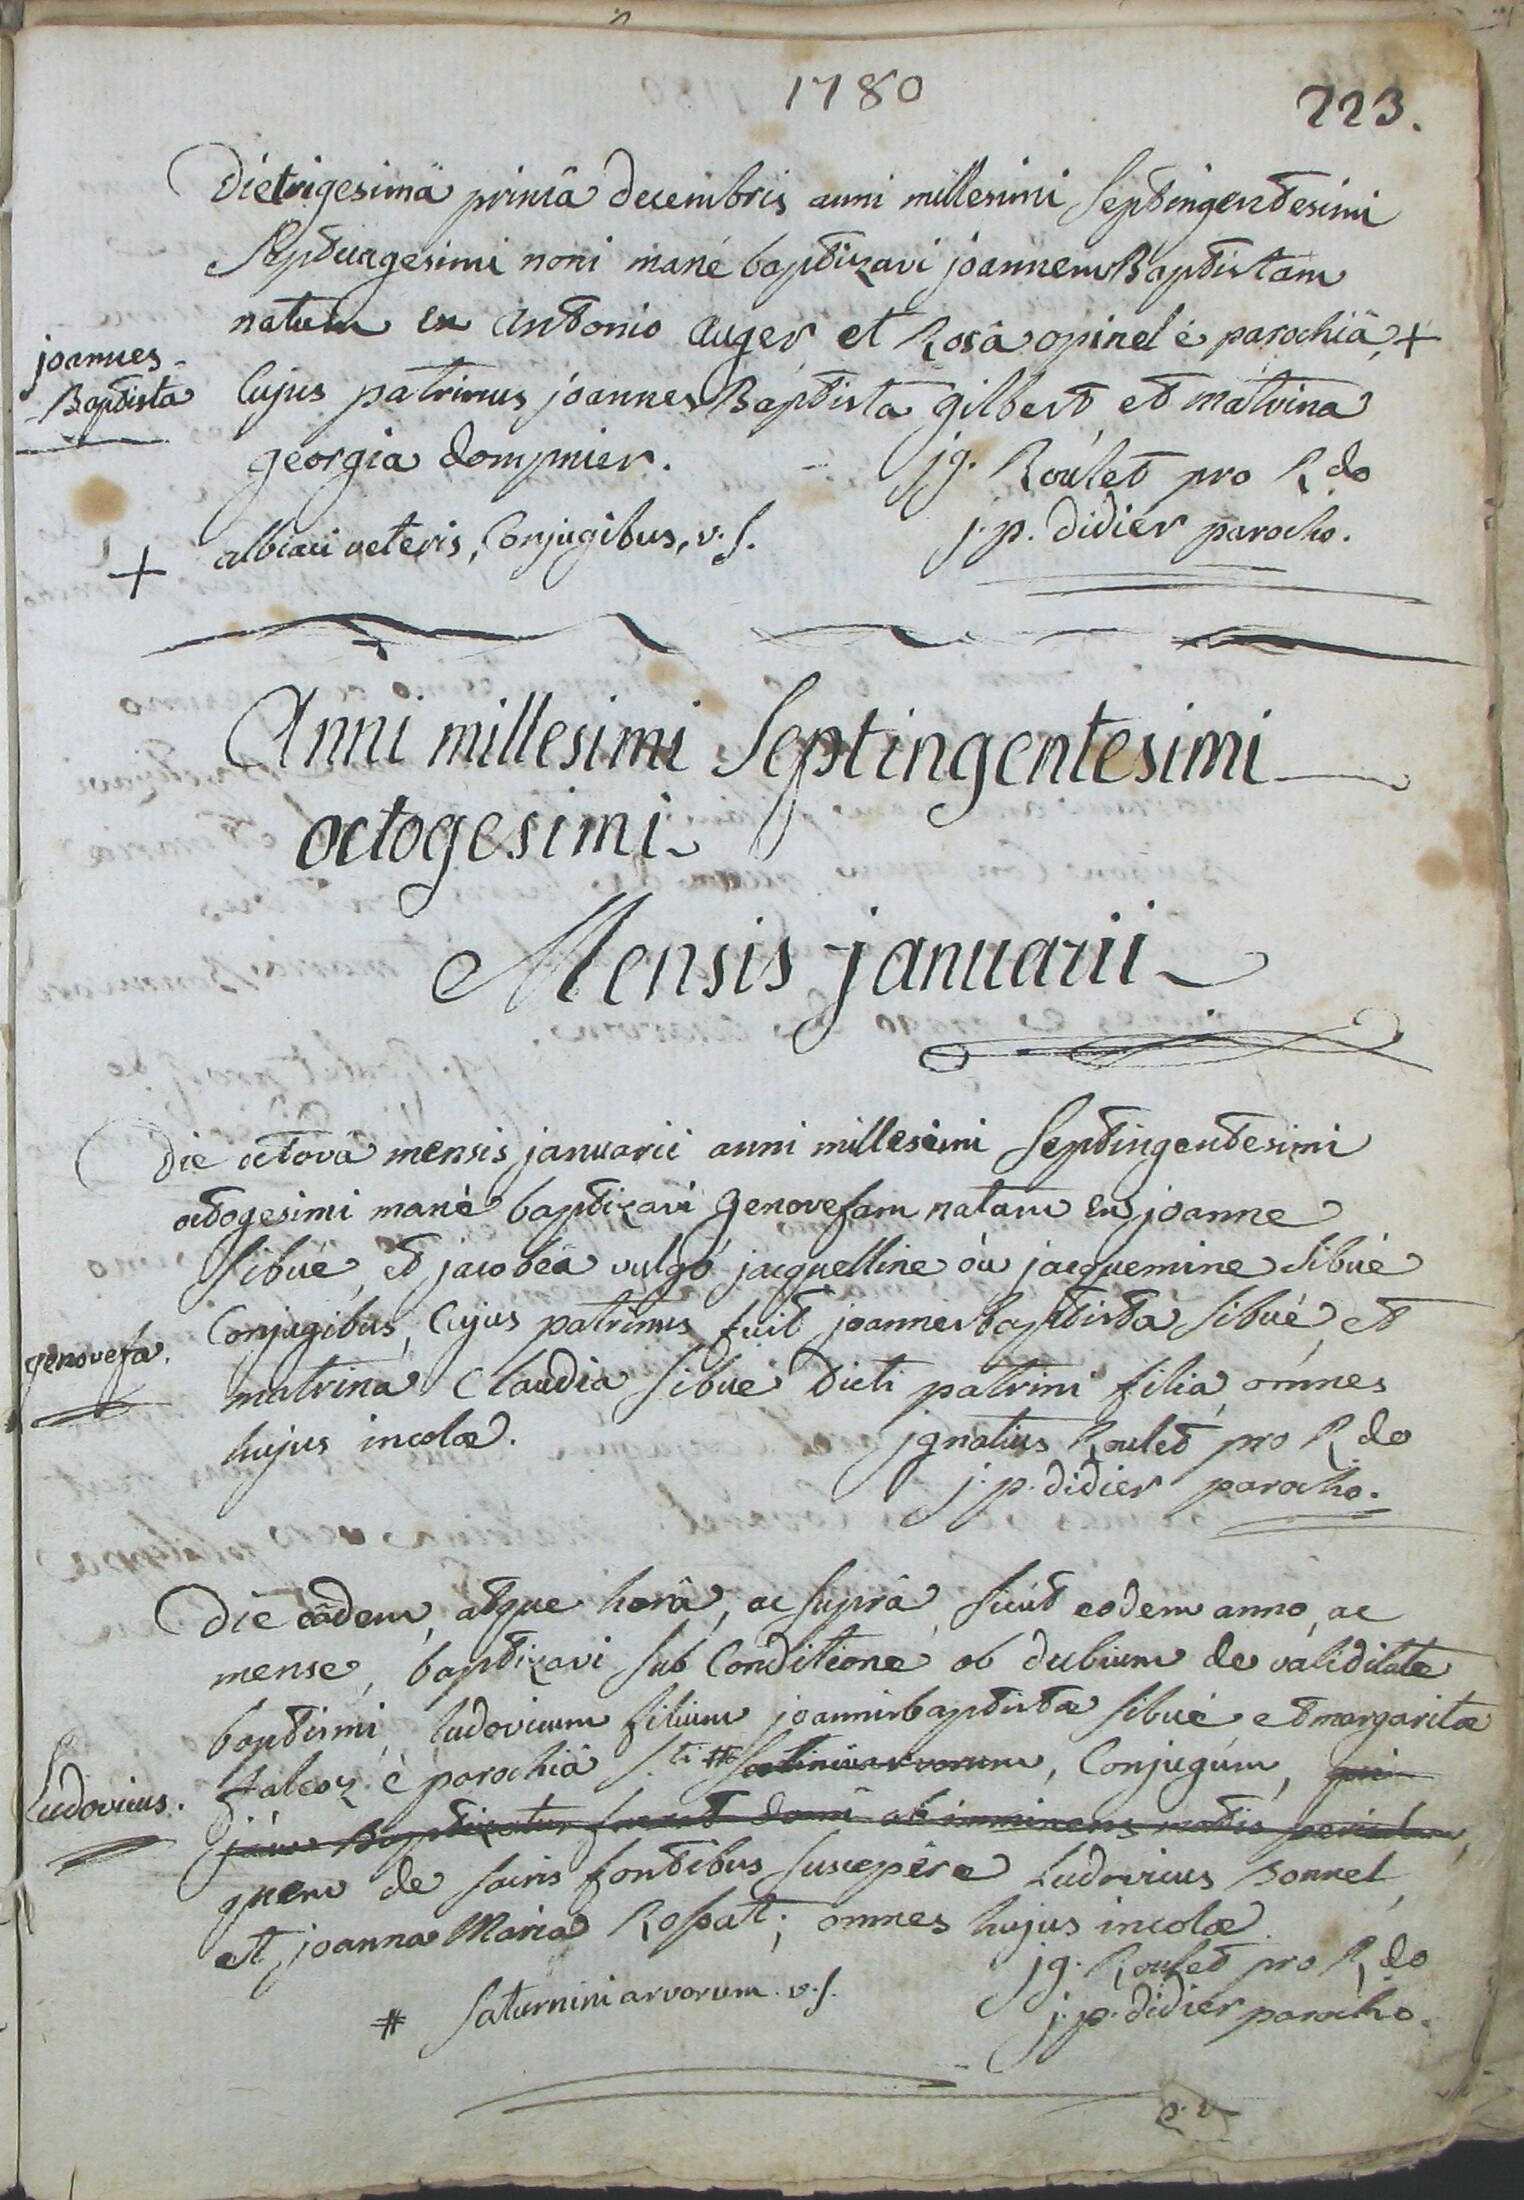 1780
223.
Die trigesimâ primâ decembris anni millesimi septingentesimi
septuagesimi noni manè baptizavi joannem Baptistam
natum ex antonio auger et Rosâ opinel è parochiâ, +
joannes-
Baptista
Cujus patrinus joannes Baptista gilbert, et matrina
georgia dompnier.
jg. Roulet pro Rdo
+ albiaci veteris, Conjugibus, v. s.
j. p. didier parocho.
Anni millesimi Septingentesimi
octogesimi
Mensis januarii
Die octovâ mensis januarii anni millesimi septingentesimi
octogesimi manè baptizavi genovefam natam ex joanne
sibué, et jacobéâ vulgó jacquelline oú jacquemine sibué
genovefa.
Conjugibus, Cujus patrinus fuit joannes baptista sibué, et
matrina Claudia sibué dicti patrini filia, omnes
hujus incolæ.
jgnatius Roulet pro Rdo
j. p. didier parocho.
Die eâdem, atque horâ, ac suprâ, sicút eodem anno, ac
mense, baptizavi sub Conditione ob dubium de validitate
baptismi, ludovicum filium joannis baptistæ sibué et margaritæ
falcoz è parochiâ s.ti # arvorum, Conjugúm, qui
Ludovicus.
jám Baptizatus fuerat domi ob imminens mortis periculum,
quem de sacris fontibus suscepêre Ludovicus Bonnel,
et joanna Maria Rossat; omnes hujus incolæ.
jg. Roulet pro Rdo
# saturnini arvorum. v. s.
j. p. didier parocho.